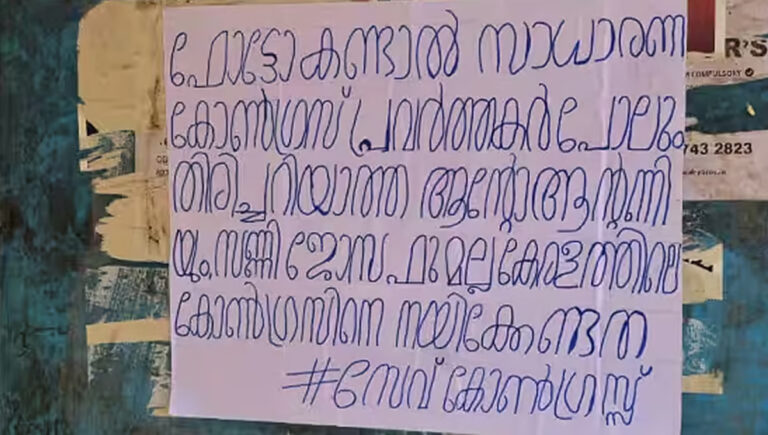 ഫോട്ടോ കണ്ടാൽ സാധാരണ
R'S
COMPULSORY
കോൺഗ്രസ് പ്രവർത്തകർ പോലും
743 2823
തിരിച്ചറിയാത്ത ആന്റോ ആന്റണി
യും, സണ്ണി ജോസഫുമല്ല കേരളത്തിലെ
കോൺഗ്രസിനെ നയിക്കേണ്ടത
#സേവ് കോൺഗ്രസ്സ്